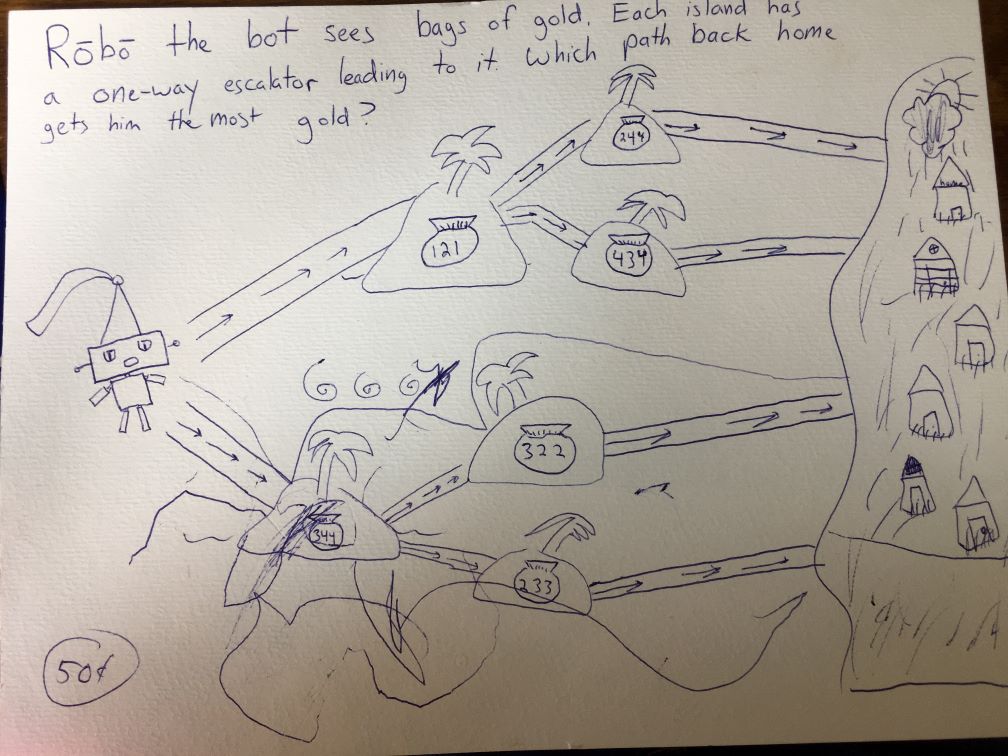 Rōbō the bot sees bags of gold. Each island has
a one-way escalator leading to it. Which path back home
gets him the most gold?
244
121
434
home
6 6 6
322
344
233
50¢